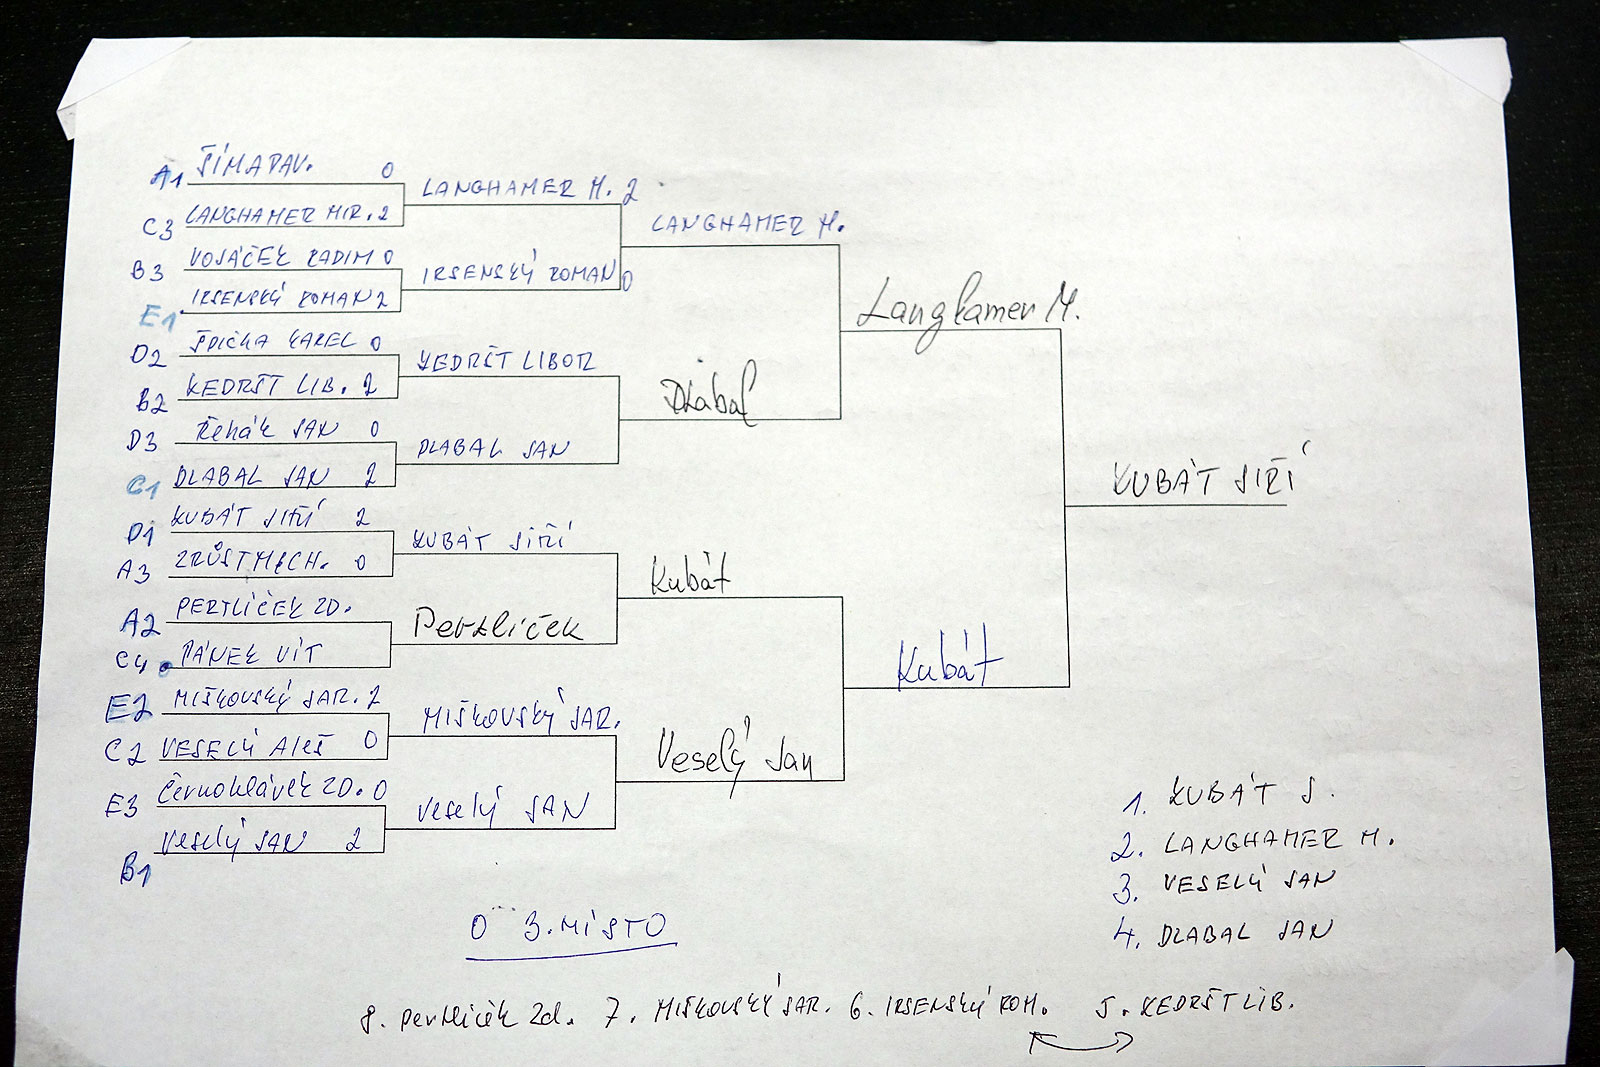 A1 ŠÍMA PAV. 0
C3 LANGHAMER MIR. 2
B3 VOJÁČEK RADIM 0
E1 IRSENSKÝ ROMAN 2
D2 ŠPIČKA KAREL 0
B2 KEDRŠT LIB. 2
D3 Řehák JAN 0
C1 DLABAL JAN 2
D1 KUBÁT JIŘÍ 2
A3 ZRŮST MICH. 0
A2 PERTLÍČEK ZD.
C4 PÁNEK VÍT
E2 MIŠKOVSKÝ JAR. 2
C2 VESELÝ Aleš 0
E3 Černohlávek ZD. 0
B1 Veselý JAN 2
LANGHAMER M. 2
IRSENSKÝ ROMAN 0
KEDRŠT LIBOR
DLABAL JAN
KUBÁT JIŘÍ
Pertlíček
MIŠKOVSKÝ JAR.
Veselý JAN
LANGHAMER M.
Dlabal
Kubát
Veselý Jan
Langhamer M.
Kubát
KUBÁT JIŘÍ
1. KUBÁT J.
2. LANGHAMER M.
3. VESELÝ JAN
4. DLABAL JAN
O 3. MÍSTO
8. Pertlíček Zd. 7. MIŠKOVSKÝ JAR. 6. IRSENSKÝ ROM. 5. KEDRŠT LIB.